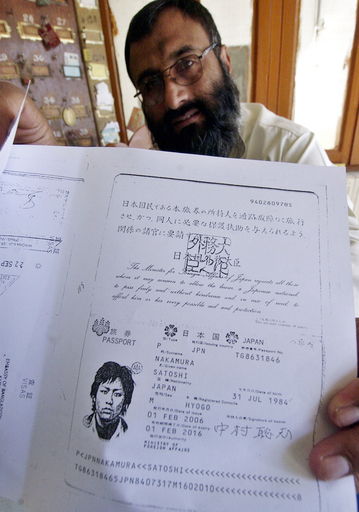 9402809785
日本国民である本旅券の所持人を通路故障なく旅行
させ、かつ、同人に必要な保護扶助を与えられるよう、
関係の諸官に要請する。
日本国外務大臣
The Minister for Foreign Affairs of Japan requests all those
whom it may concern to allow the bearer, a Japanese national,
to pass freely and without hindrance and, in case of need, to
afford him or her every possible aid and protection.
旅券 日本国 JAPAN
PASSPORT
P JPN TG8631846
NAKAMURA
SATOSHI
JAPAN 31 JUL 1984
M HYOGO
01 FEB 2006
01 FEB 2016
MINISTRY OF
FOREIGN AFFAIRS
P<JPNNAKAMURA<<SATOSHI<<<<<<<<<<<<<<<<<
22 SEP
VISAS